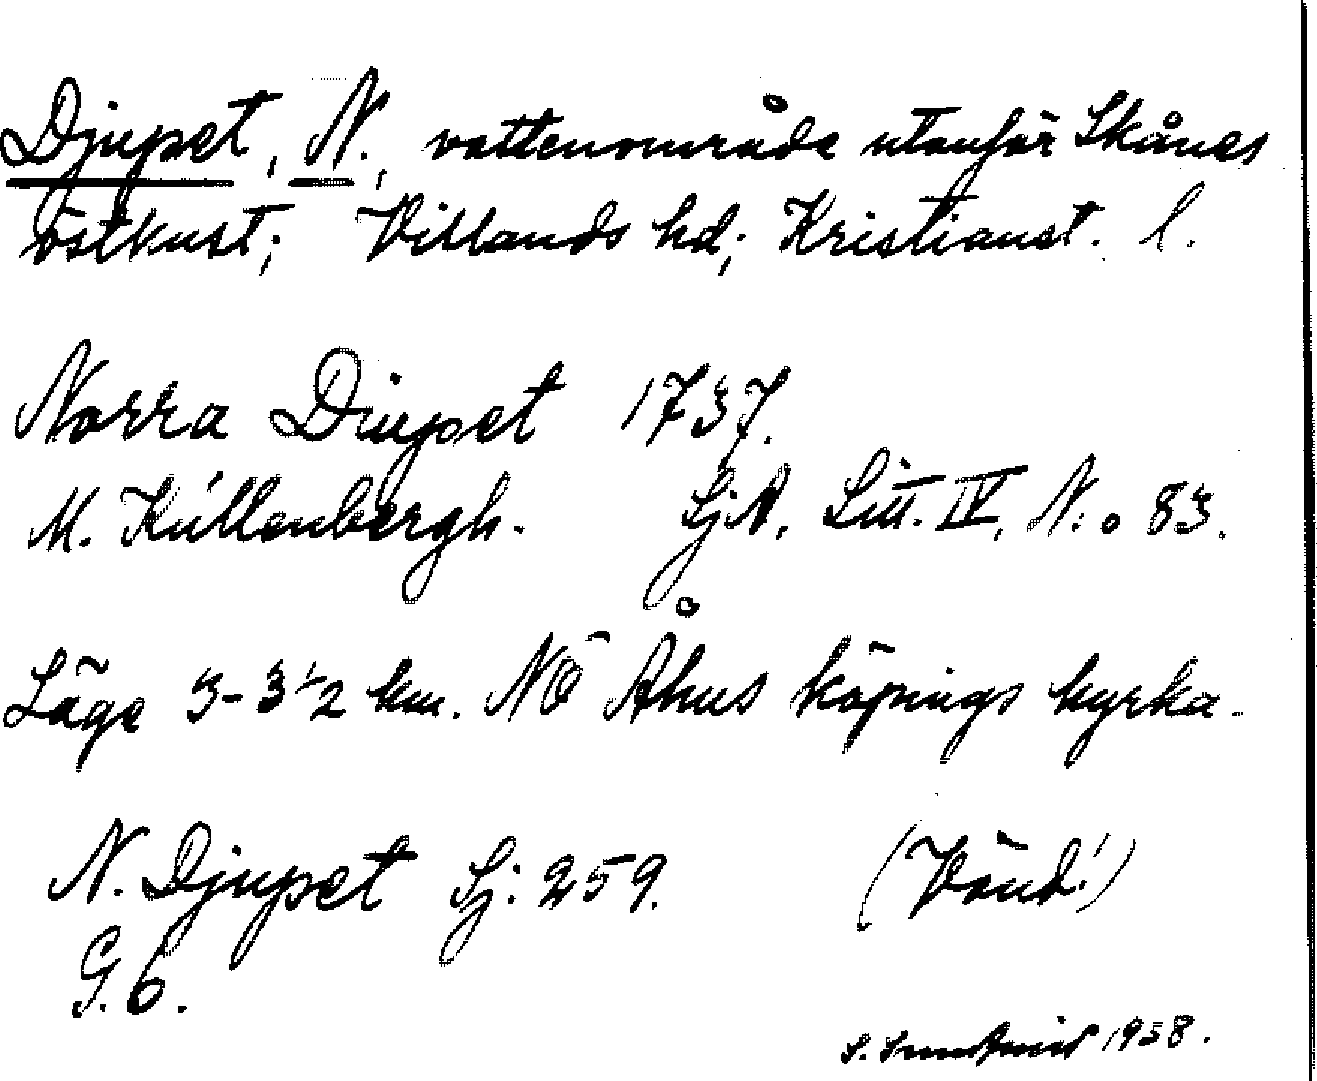 Djupet, N., vattenområde utanför Skånes
östkust; Villands hd; Kristianst. l.
Norra Diupet 1737.
M. Kúllenbergh. SjA, Litt. IV, N:o 83.
Läge 3-3 1/2 km. NÖ Åhus köpings kyrka.
N. Djupet Sj: 259. (Vänd!)
G. 6.
S. 1958.